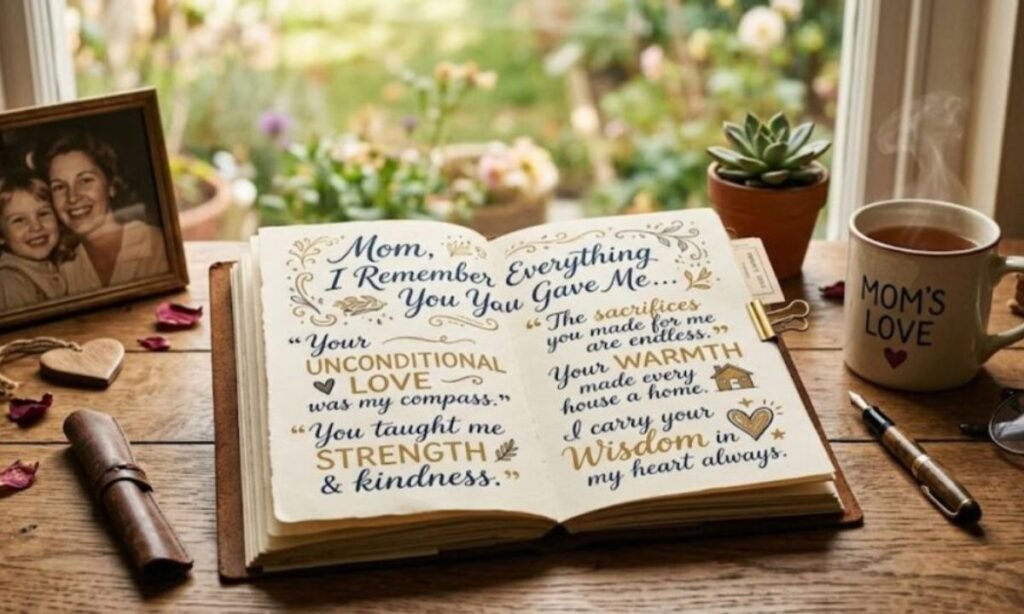 Mom,
I Remember Everything
You You Gave Me...
“Your
UNCONDITIONAL
LOVE
was my compass.”
“You taught me
STRENGTH
& kindness.”
“The sacrifices
you made for me
are endless.”
Your WARMTH
made every
house a home.
I carry your
Wisdom in
my heart always.
MOM'S
LOVE